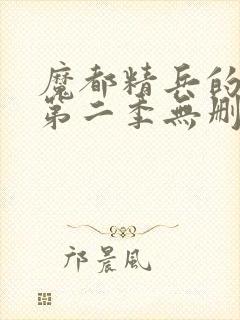 魔都精兵的
第二季無刪
邝晨風